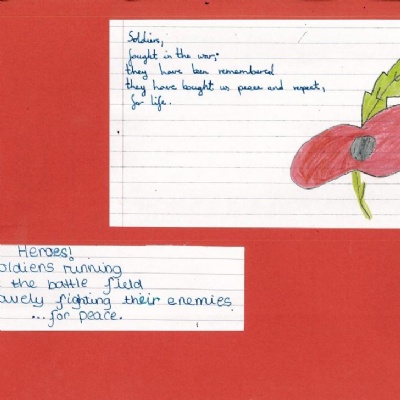 Soldiers,
fought in the war,
they have been remembered
they have bought us peace and respect,
for life.
Heroes!
oldiers running
the battle field
avely fighting their enemies
...for peace.